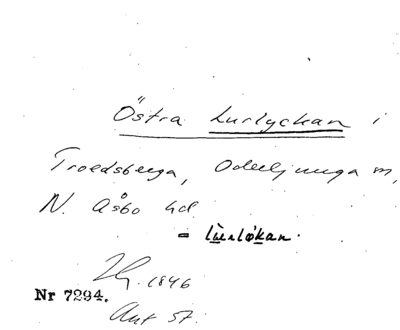 Östra Lurlyckan i
Troedsberga, Oderljunga sn,
N. Åsbo hd
= lùrløkan.
1846
Nr 7294.